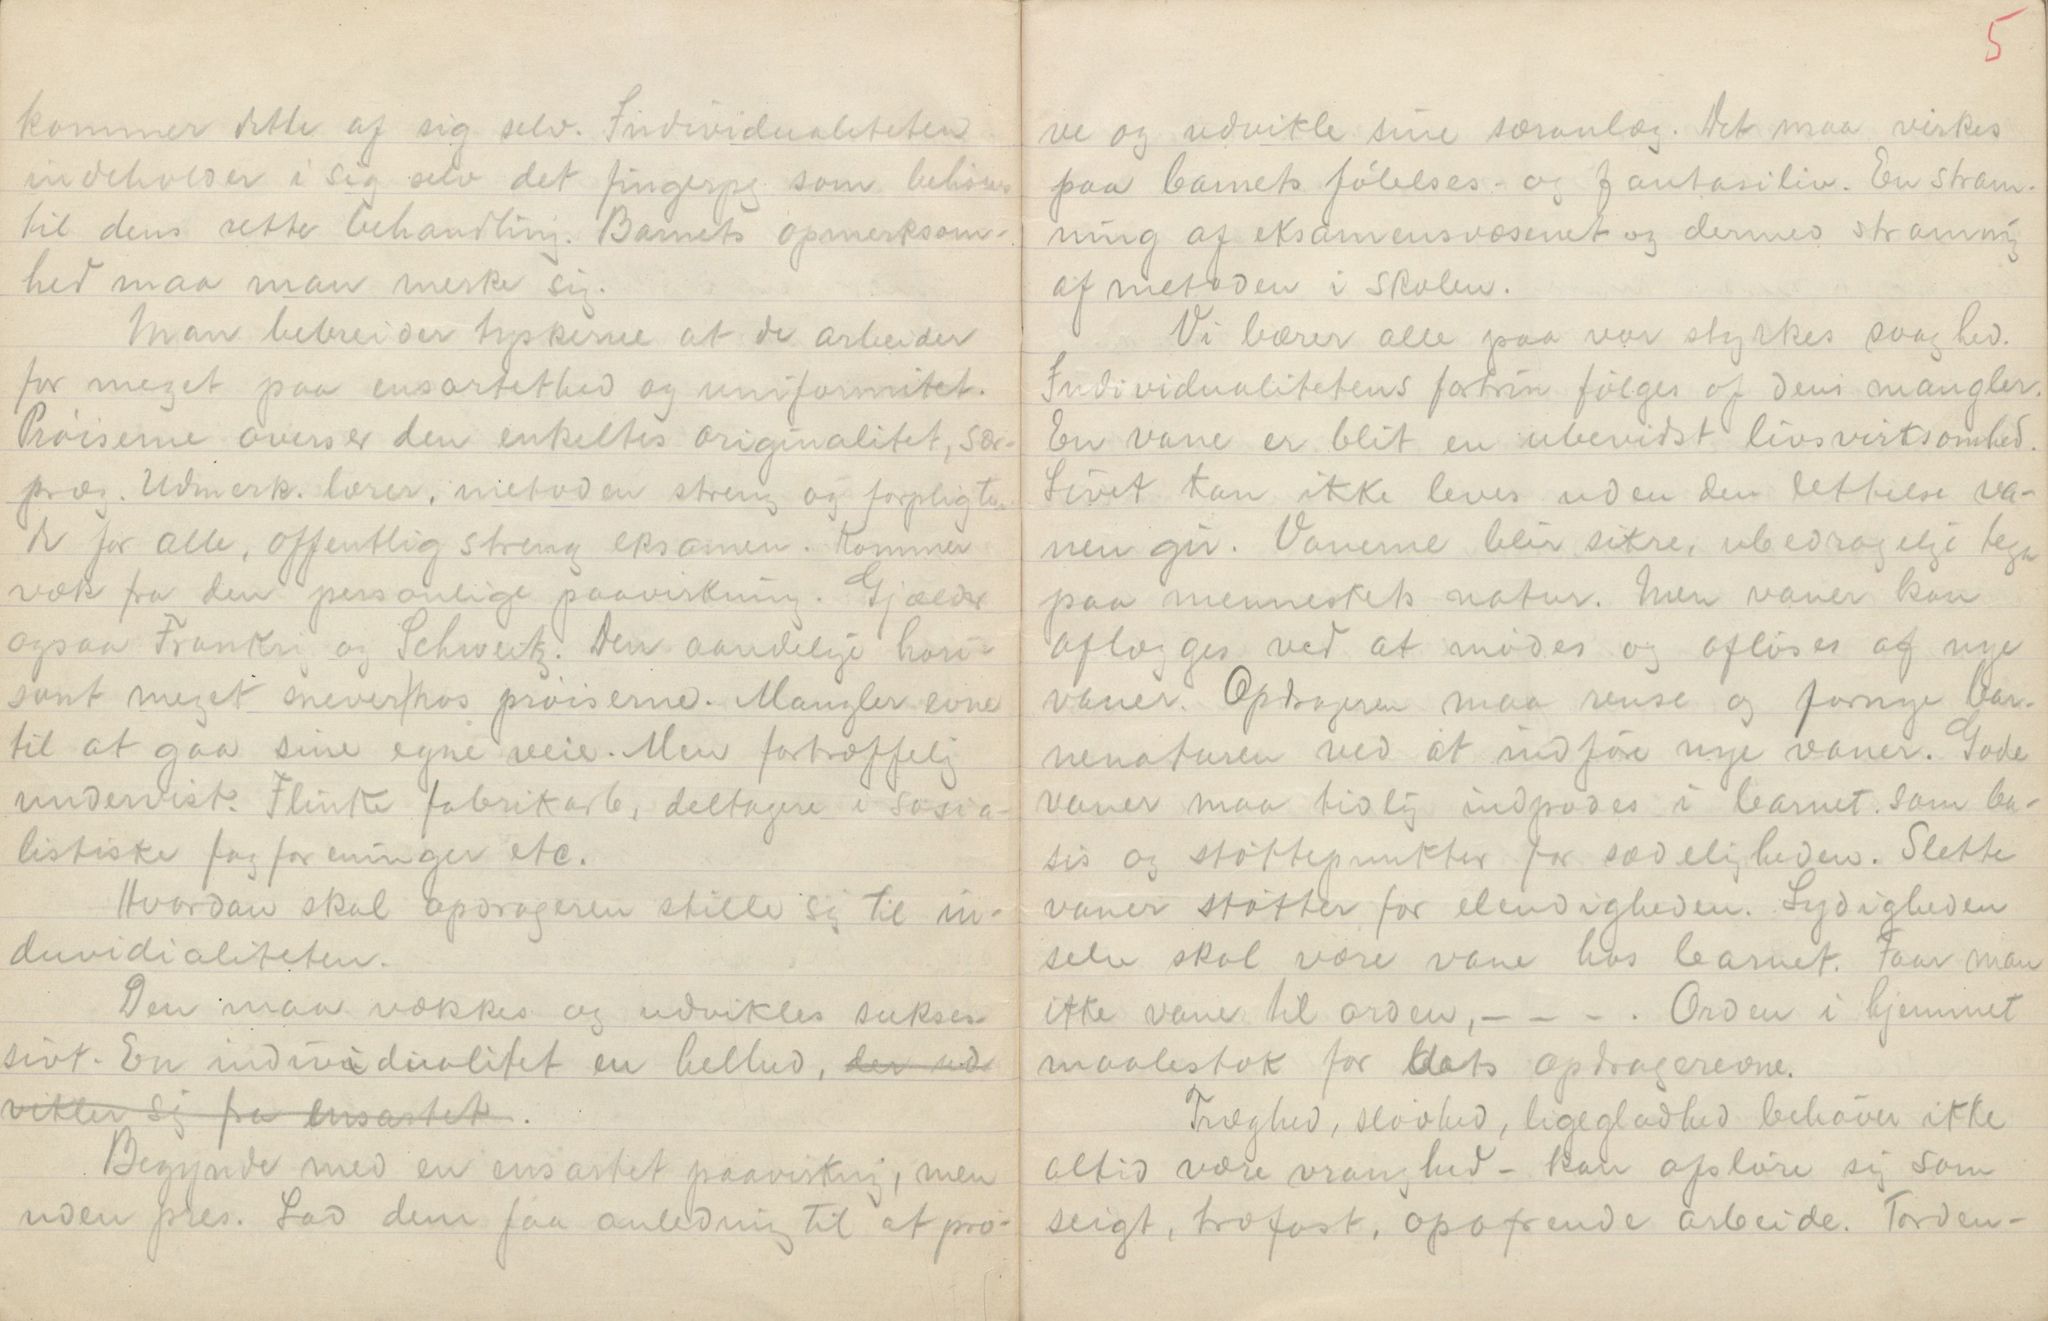 kommer dette af sig selv. Individualiteten
indeholder i sig selv det fingerpeg som behøves
til dens rette behandling. Barnets opmerksom-
hed maa man merke sig.
Man bebreider tyskerne at de arbeider
for meget paa ensartethed og uniformitet.
Prøiserne overser den enkeltes originalitet, sær-
præg. Udmerk. lærer, metoden streng og forpligten-
de for alle, offentlig streng eksamen. Kommer
væk fra den personlige paavirkning. Gjælder
ogsaa Frankrig og Schweitz. Den aandelige hori-
sont meget snever hos prøiserne. Mangler evne
til at gaa sine egne veie. Men fortræffelig
undervist. Flinke fabrikarb, deltagere i sosia-
listiske fagforeninger etc.
Hvordan skal opdrageren stille sig til in-
duvidialiteten.
Den maa vækkes og udvikles sukses-
sivt. En individualitet en helhed, der ud
vikler sig fra ensartet.
Begynde med en ensartet paavirkning, men
uden pres. Lad dem faa anledning til at prø-
5
ve og udvikle sine særanlæg. Det maa virkes
paa barnets følelses- og fantasiliv. En stram-
ning af eksamensvæsenet og dermed stramning
af metoden i skolen.
Vi bærer alle paa vor styrkes svaghed.
Individualitetens fortrin følges af dens mangler.
En vane er blit en ubevidst livsvirksomhed.
Livet kan ikke leves uden den lettelse va-
nen gir. Vanerne blir sikre, ubedragelige tegn
paa menneskets natur. Men vaner kan
aflægges ved at mødes og afløses af nye
vaner. Opdrageren maa rense og fornye bar-
nenaturen ved at indføre nye vaner. Gode
vaner maa tidlig indpodes i barnet som ba-
sis og støttepunkter for sædeligheden. Slette
vaner støtter for elendigheden. Lydigheden
selv skal være vane hos barnet. Faar man
ikke vane til orden, – – – . Orden i hjemmet
maalestok for dets opdragerevne.
Træghed, sløvhed, ligegladhed behøver ikke
altid være vranghed – kan afsløre sig som
seigt, trofast, opofrende arbeide. Torden-